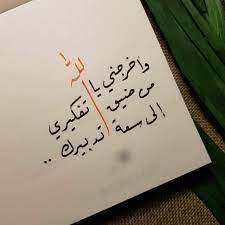 واخرجني يا الله
من ضيق تفكيري
إلى سعة تدبيرك ..